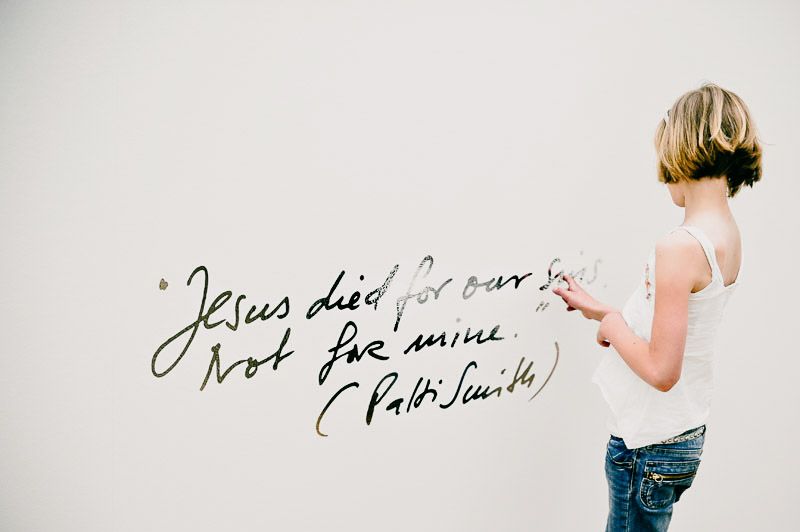 "Jesus died for our sins.
Not for mine."
(Patti Smith)